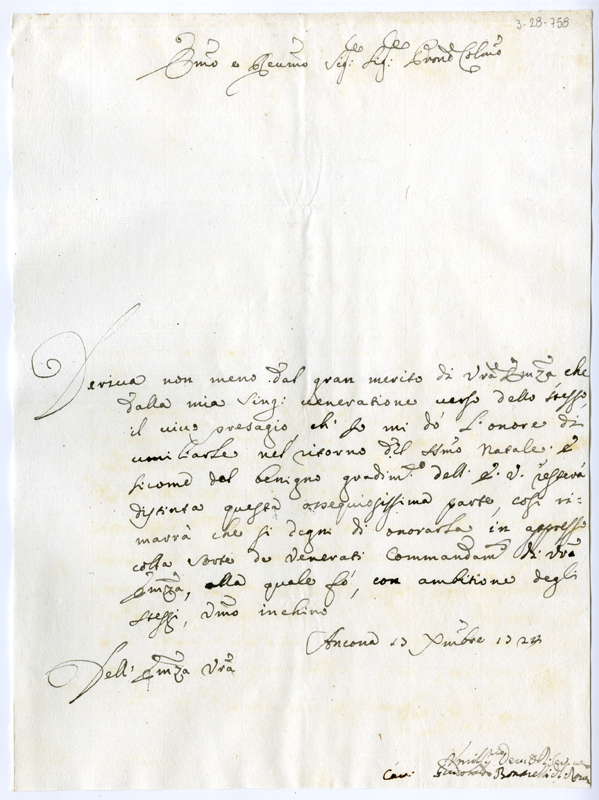 3-28-758
Emo e Reumo Sig.r Sig.r Pron Colmo
Deriua non meno dal gran merito di Vrã Emza che
dalla mia sing: ueneratione uerso dello stesso,
il uiuo presagio, ch' io mi dò l'onore di
umiliarle nel ritorno del Smo Natale. E
sicome dal benigno gradim.to dell' E. V. resterà
distinta questa ossequiosissima parte, così ri=
marrà che si degni di onorarla in appresso
colla sorte de Venerati Commandam.ti di Vrã
Emza, alla quale fò, con ambitione degli
stessi, Vmo inchino
Ancona 13 Xmbre 17
Dell' Emza Vrã
Vmil.mo Deu.mo
Bonarelli